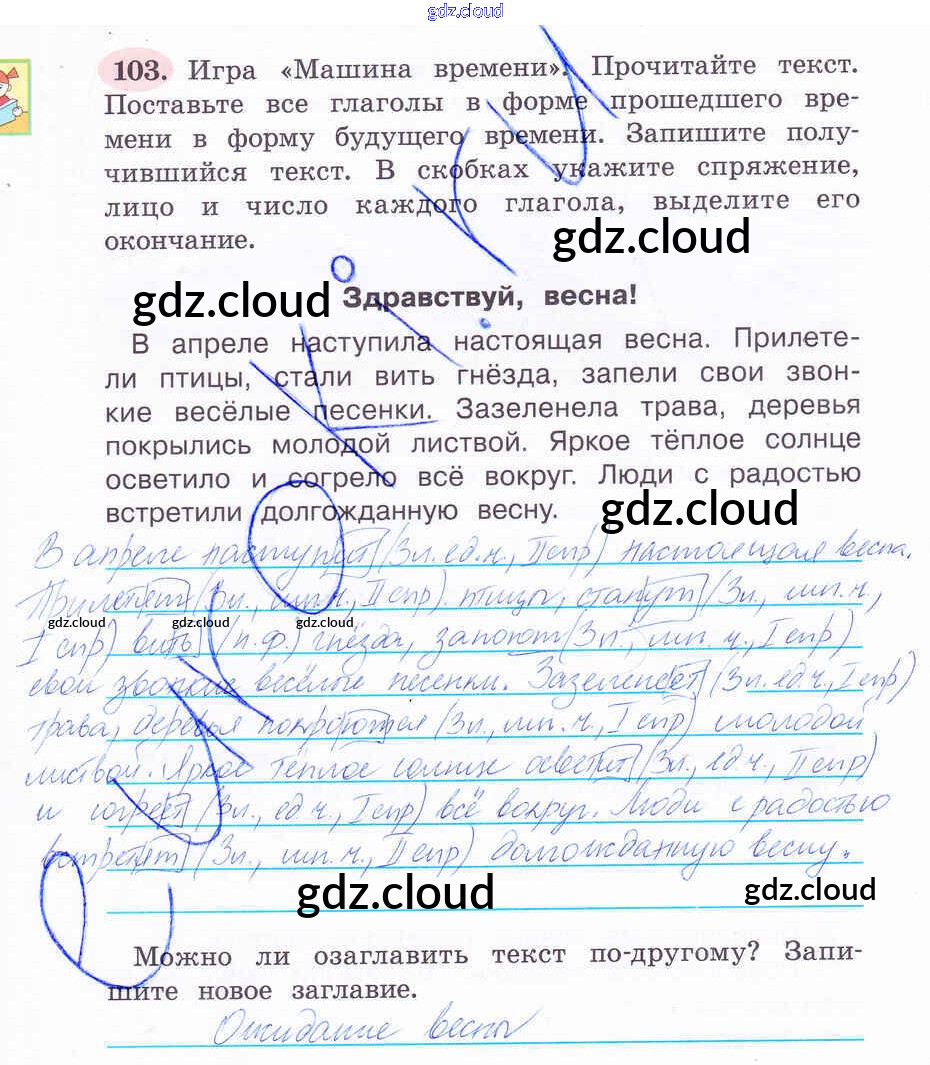 gdz.cloud
103. Игра «Машина времени». Прочитайте текст.
Поставьте все глаголы в форме прошедшего вре-
мени в форму будущего времени. Запишите полу-
чившийся текст. В скобках укажите спряжение,
лицо и число каждого глагола, выделите его
окончание.
gdz.cloud
gdz.cloud
Здравствуй, весна!
В апреле наступила настоящая весна. Прилете-
ли птицы, стали вить гнёзда, запели свои звон-
кие весёлые песенки. Зазеленела трава, деревья
покрылись молодой листвой. Яркое тёплое солнце
осветило и согрело всё вокруг. Люди с радостью
встретили долгожданную весну.
gdz.cloud
В апреле наступит (3 л. ед. ч., II спр) настоящая весна.
Прилетят (3 л., мн. ч., II спр) птицы, станут (3 л., мн. ч.,
gdz.cloud gdz.cloud gdz.cloud
I спр) вить (н. ф.) гнёзда, запоют (3 л., мн. ч., I спр)
свои звонкие весёлые песенки. Зазеленеет (3 л. ед. ч., I спр)
трава, деревья покроются (3 л., мн. ч., I спр) молодой
листвой. Яркое тёплое солнце осветит (3 л., ед. ч., II спр)
и согреет (3 л., ед. ч., I спр) всё вокруг. Люди с радостью
встретят (3 л., мн. ч., II спр) долгожданную весну.
gdz.cloud
gdz.cloud
Можно ли озаглавить текст по-другому? Запи-
шите новое заглавие.
Ожидание весны